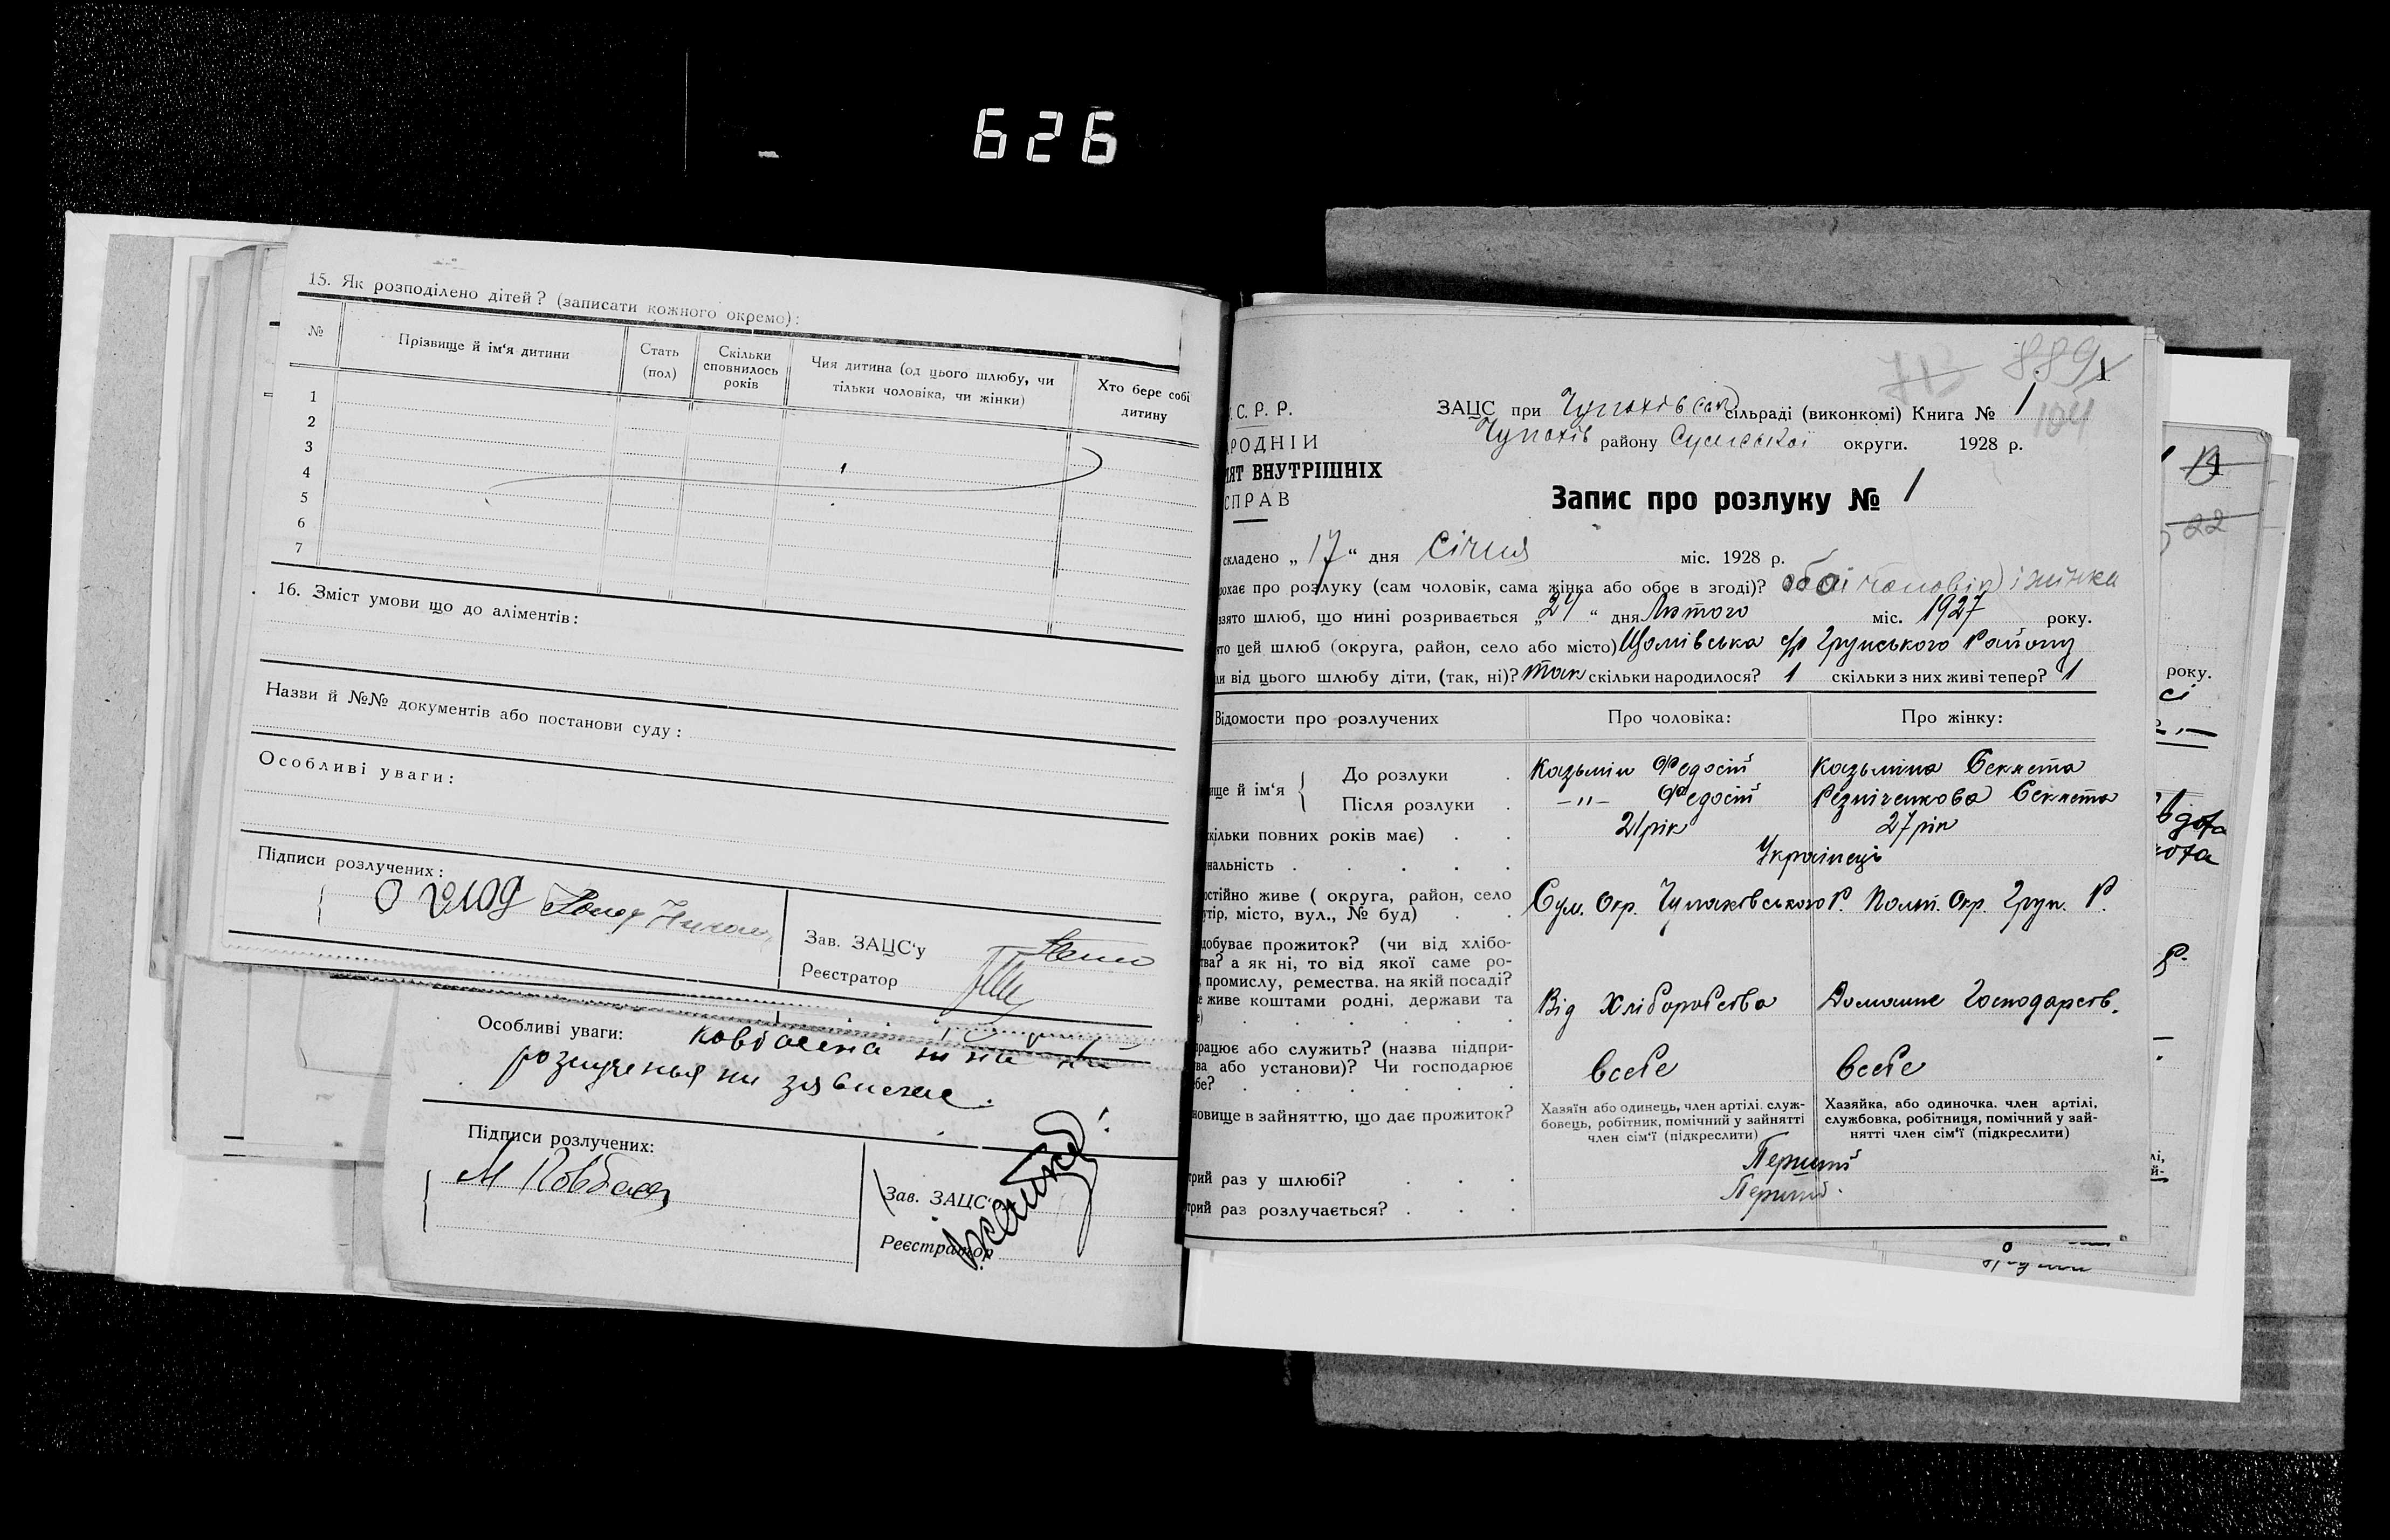 626
15. Як розподілено дітей? (записати кожного окремо):
№ Прізвище й ім'я дитини Стать (пол) Скільки сповнилось років Чия дитина (од цього шлюбу, чи тільки чоловіка, чи жінки) Хто бере собі дитину
1
2
3
4
5
6
7
16. Зміст умови що до аліментів:
Назви й №№ документів або постанови суду:
Особливі уваги:
Підписи розлучених:
Зав. ЗАЦС'у
Реєстратор
Особливі уваги:
Підписи розлучених:
М Ковбаса
Зав. ЗАЦС'
Реєстратор
889
1
104
С. Р. Р.
ЗАЦС при сільраді (виконкомі) Книга № 1
РОДНІЙ
Чупахів району Сумської округи. 1928 р.
ЯТ ВНУТРІШНІХ
СПРАВ
Запис про розлуку № 1
складено „ 17 “ дня Січня міс. 1928 р.
охає про розлуку (сам чоловік, сама жінка або обоє в згоді)? обоі чоловік і жінка
взято шлюб, що нині розривається „ 24 “ дня Лютого міс. 1927 року.
то цей шлюб (округа, район, село або місто) с/р Грунського Району
ли від цього шлюбу діти, (так, ні)? так скільки народилося? 1 скільки з них живі тепер? 1
Відомости про розлучених Про чоловіка: Про жінку:
ище й ім'я
До розлуки Козьмін Федосій Козьміна Секлета
Після розлуки –"– Федосій Резніченкова Секлета
кільки повних років має) 21 рік 27 рік
нальність Українець
остійно живе ( округа, район, село
утір, місто, вул., № буд) Сум. Окр. Чупахівського Р. Полт. Окр. Грун. Р.
добуває прожиток? (чи від хлібо-
тва? а як ні, то від якої саме ро-
, промислу, ремества. на якій посаді?
е живе коштами родні, держави та
е) Від Хліборобства Домашнє Господарств.
працює або служить? (назва підпри-
ва або установи)? Чи господарює
бе? в себе в себе
новище в зайняттю, що дає прожиток?
Хазяїн або одинець, член артілі. служ-
бовець, робітник, помічний у зайнятті
член сім'ї (підкреслити)
Хазяйка, або одиночка. член артілі,
службовка, робітниця, помічний у зай-
нятті член сім'ї (підкреслити)
трий раз у шлюбі? Перший
трий раз розлучається? Перший.
22
року.